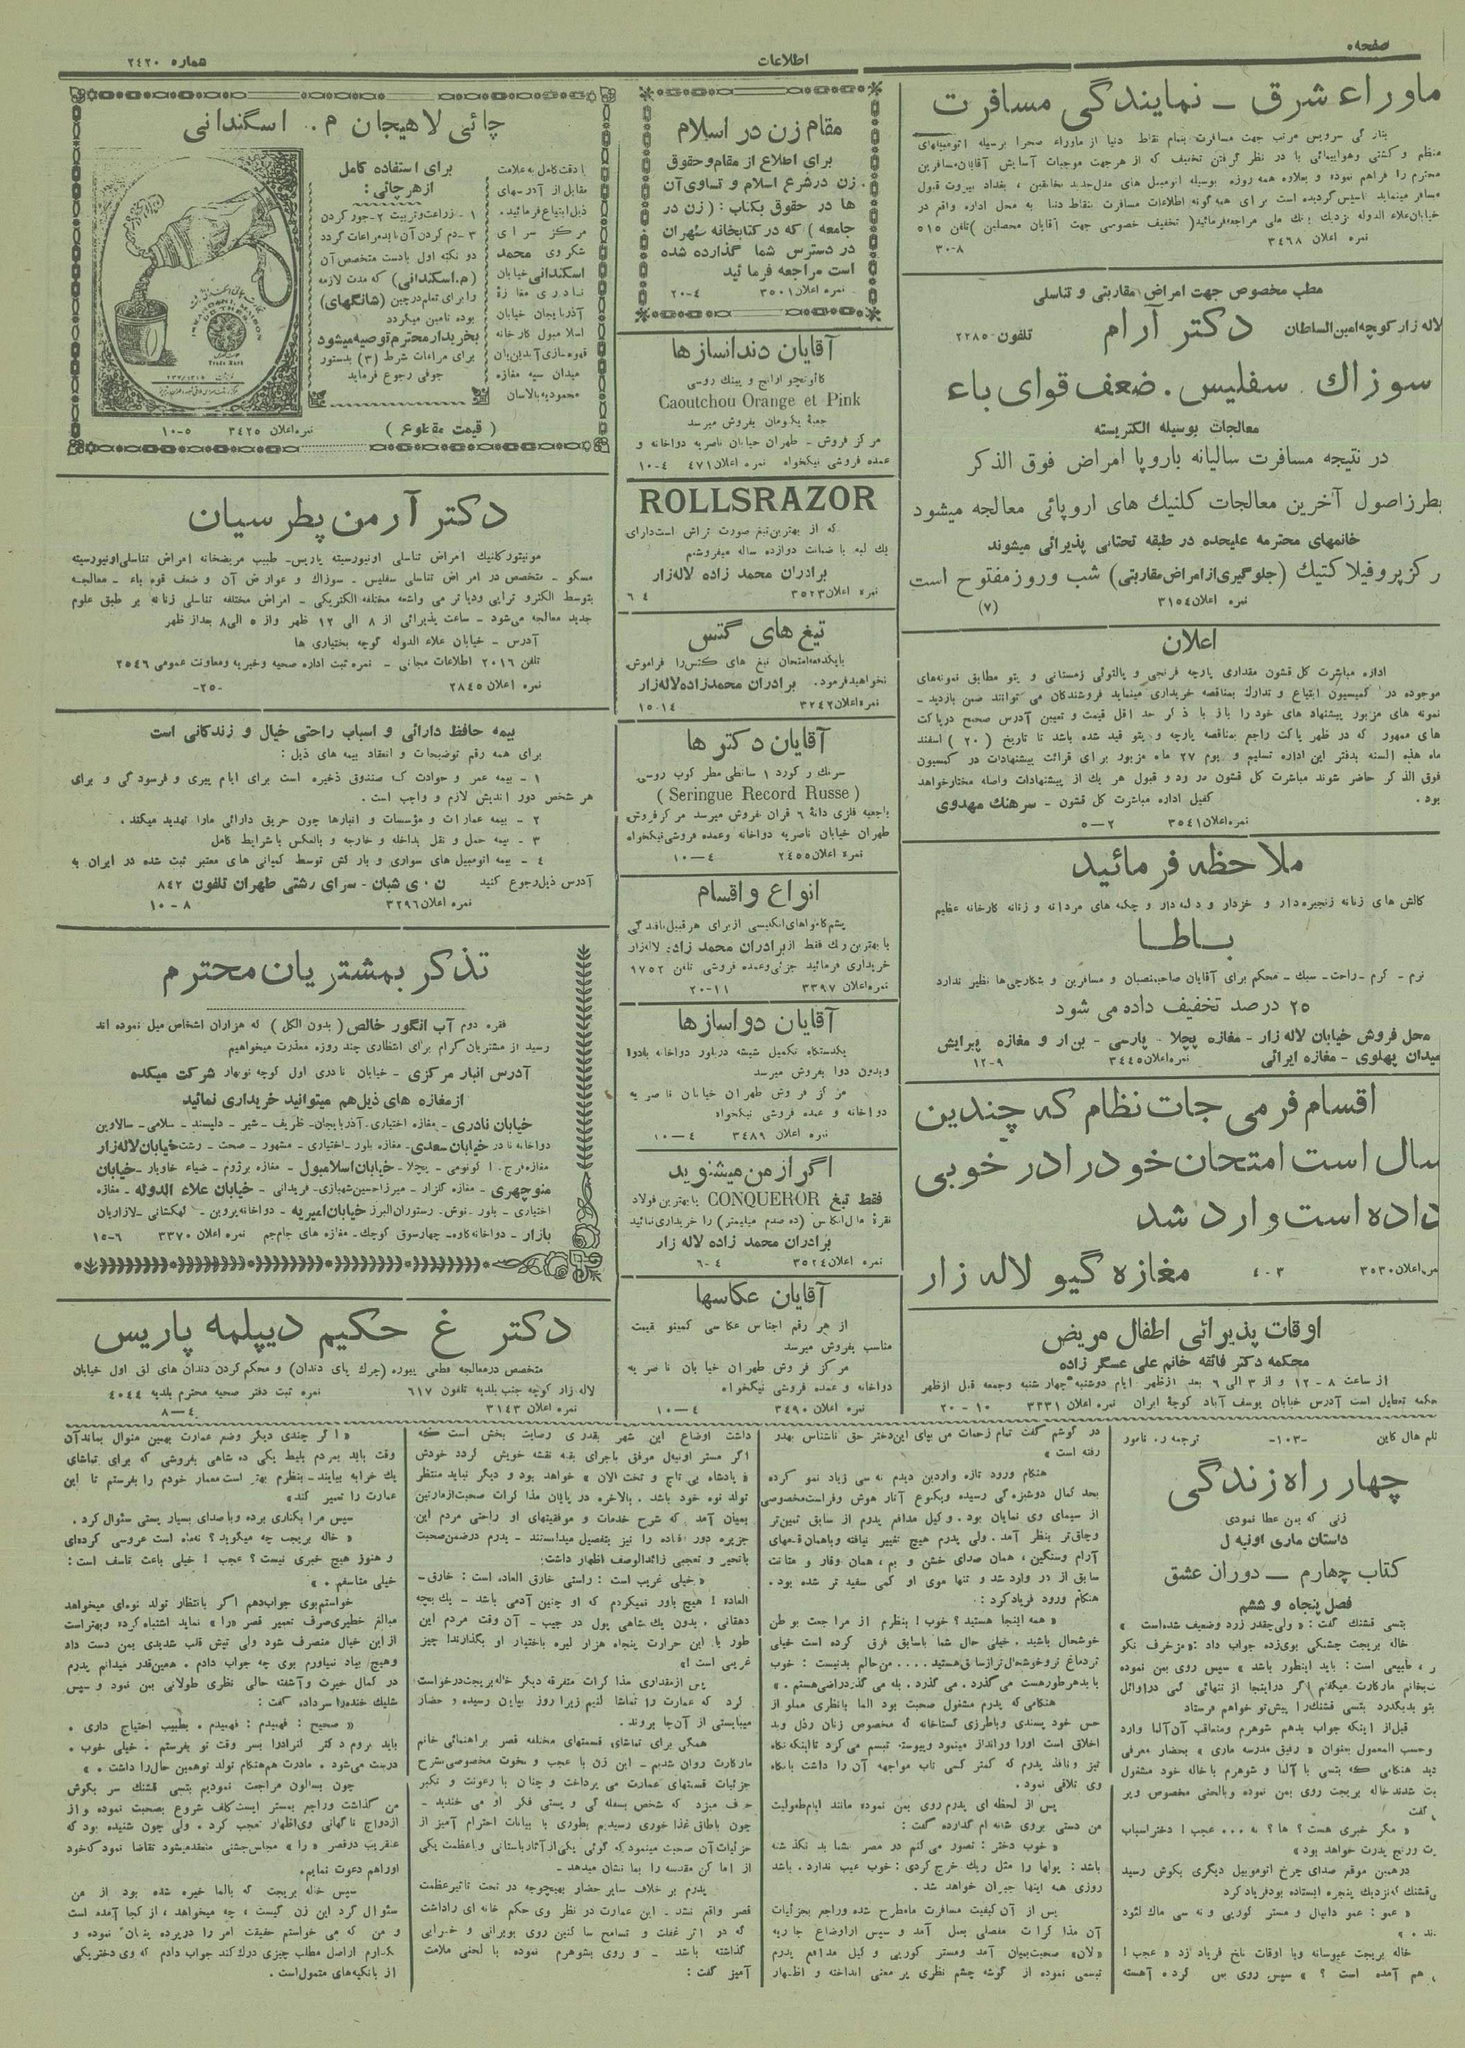 صفحه ۵
اطلاعات
شماره ۲۴۲۰
ماوراء شرق ـ نمایندگی مسافرت
منظم و کشتی وهواپیمائی با در نظر گرفتن تخفیف که از هرجهت موجبات آسایش آقایان مسافرین
محترم را فراهم نموده و بعلاوه همه روزه بوسیله اتومبیل های مدل جدید بخانقین ، بغداد بیروت قبول
مسافر مینماید تاسیس گردیده است برای هرگونه اطلاعات مسافرت بنقاط دنیا به محل اداره واقع در
خیابان علاء الدوله نزدیك بنك ملی مراجعه فرمائید ( تخفیف خصوصی جهت آقایان محصلین ) تلفن ۵۱۵
نمره اعلان ۳۴۶۸
۸-۳۰
مطب مخصوص جهت امراض مقاربتی و تناسلی
لاله زار کوچه امین السلطان دکتر آرام تلفون - ۲۲۸۵
سوزاك . سفلیس . ضعف قوای باء
معالجات بوسیله الکتریسته
در نتیجه مسافرت سالیانه باروپا امراض فوق الذکر
بطرز اصول آخرین معالجات کلنیك های اروپائی معالجه میشود
خانمهای محترمه علیحده در طبقه تحتانی پذیرائی میشوند
رکز پروفیلاکتیك (جلوگیری از امراض مقاربتی) شب وروز مفتوح است
نمره اعلان ۳۱۵۴
(۷)
اعلان
اداره مباشرت کل قشون مقداری پارچه فرنجی و پالتوئی زمستانی و پتو مطابق نمونه‌های
موجوده در کمیسیون ابتیاع و تدارك بمناقصه خریداری مینماید فروشندگان می توانند ضمن بازدید ـ
نمونه های مزبور پیشنهاد های خود را باز با ذکر حد اقل قیمت و تعیین آدرس صحیح درپاکت
های ممهور که در ظهر پاکت راجع بمناقصه پارچه و پتو قید شده باشد تا تاریخ ( ۲۰ ) اسفند
ماه هذه السنه بدفتر این اداره تسلیم و یوم ۲۷ ماه مزبور برای قرائت پیشنهادات در کمسیون
فوق الذکر حاضر شوند مباشرت کل قشون در رد و قبول هر یك از پیشنهادات واصله مختار خواهد
بود . کفیل اداره مباشرت کل قشون ـ سرهنك مهدوی
نمره اعلان ۳۵۴۱ ۲—۵
ملاحظه فرمائید
کالش های زنانه زنجیره دار و خزدار و دکمه دار و چکمه های مردانه و زنانه کارخانه عظیم
باطا
نرم ـ گرم ـ راحت ـ سبك ـ محکم برای آقایان صاحبمنصبان و مسافرین و شکارچی‌ها نظیر ندارد
۲۵ درصد تخفیف داده می شود
محل فروش خیابان لاله زار ـ مغازه پچلا ـ پارسی ـ بن ار و مغازه پیرایش
میدان پهلوی ـ مغازه ایرانی نمره اعلان ۳۴۴۵ ۹-۱۲
اقسام فرمی جات نظام که چندین
سال است امتحان خود را در خوبی
داده است وارد شد
مغازه گیو لاله زار
نمره اعلان ۳۵۳۰ ۳-۴۰
اوقات پذیرائی اطفال مریض
محکمه دکتر فائقه خانم علی عسگر زاده
از ساعت ۸ - ۱۲ و از ۳ الی ۶ بعد ازظهر ایام دوشنبه چهار شنبه وجمعه قبل ازظهر
محکمه تعطیل است آدرس خیابان یوسف آباد کوچه ایران نمره اعلان ۳۳۳۱ ۱۰ - ۲۰
مقام زن در اسلام
برای اطلاع از مقام و حقوق
زن در شرع اسلام و تساوی آن
ها در حقوق بکتاب : ( زن در
جامعه ) که در کتابخانه طهران
در دسترس شما گذارده شده
است مراجعه فرمائید
نمره اعلان ۳۵۰۱ ۴-۲۰
آقایان دندانسازها
کائوتچو ارانج و پینك روسی
Caoutchou Orange et Pink
جعبهٔ یکتومان بفروش میرسد
مرکز فروش ـ طهران خیابان ناصریه دواخانه و
عمده فروشی نیکخواه نمره اعلان ۴۷۱ ۴-۱۰
ROLLSRAZOR
که از بهترین تیغ صورت تراش است دارای
یك تیغه با ضمانت دوازده ساله میفروشیم
برادران محمد زاده لاله زار
نمره اعلان ۳۵۲۳ ۴ ۶
تیغ های گتس
بایکدفعه امتحان تیغ های گتس را فراموش
نخواهید فرمود. برادران محمدزاده لاله زار
نمره اعلان ۳۲۴۲ ۱۴-۱۵
آقایان دکتر ها
سرنك رکورد ۱ سانطی مطر کوب روسی
( Seringue Record Russe )
باجعبه فلزی دانهٔ ۶ قران بفروش میرسد مرکز فروش
طهران خیابان ناصریه دواخانه و عمده فروشی نیکخواه
نمره اعلان ۲۴۵۵ ۴—۱۰
انواع واقسام
پشم کامواهای انگلیسی از برای هر قبیل بافندگی
با بهترین رنك فقط از برادران محمد زاده لاله زار
خریداری فرمائید جزئی وعمده فروشی تلفن ۹۷۵۲
نمره اعلان ۳۳۹۷ ۱۱-۲۰
آقایان دواسازها
یکدستگاه تکمیل شیشه درباور دواخانه بادوا
وبدون دوا بفروش میرسد
مرکز فروش طهران خیابان ناصریه
دواخانه و عمده فروشی نیکخواه
نمره اعلان ۳۴۸۹ ۴—۱۰
اگر از من میشنوید
فقط تیغ CONQUEROR با بهترین فولاد
نقرهٔ مال انگلیس (ده صدم میلیمتر) را خریداری نمائید
برادران محمد زاده لاله زار
نمره اعلان ۳۵۲۴ ۴-۶
آقایان عکاسها
از هر رقم اجناس عکاسی کمپتو قیمت
مناسب بفروش میرسد
مرکز فروش طهران خیابان ناصریه
دواخانه و عمده فروشی نیکخواه
نمره اعلان ۳۴۹۰ ۴—۱۰
چائی لاهیجان م . اسگندانی
با دقت کامل به علامت
مقابل از آدرسهای
ذیل ابتیاع فرمائید.
مرکز سرای
شکروی محمد
اسکندانی خیابان
نادری مغازهٔ
آذربایجان خیابان
اسلامبول کارخانه
قهوه سازی آیدین بان
میدان سپه مغازه
محمودیه بالاسان
برای استفاده کامل
از هر چائی :
۱ - زراعت و تربیت ۲-جور کردن
۳ ـ دم کردن آن باید مراعات گردد
دو نکته اول بادست متخصص آن
( م . اسکندانی ) که مدت لازمه
را برای تعلم درچین (شانگهای)
بوده تامین میگردد
بخریدار محترم توصیه میشود
برای مراعات شرط (۳) بدستور
جوفی رجوع فرماید
( قیمت مقطوع ) نمره اعلان ۳۴۲۵ ۵-۱۰
دکتر آرمن پطرسیان
مونیتور کلنیك امراض تناسلی اونیورسیته پاریس ـ طبیب مریضخانه امراض تناسلی اونیورسیته
مسکو ـ متخصص در امراض تناسلی سفلیس ـ سوزاك و عوارض آن و ضعف قوه باء ـ معالجه
بتوسط الکتروترابی ودیاترمی واشعه مختلفه الکتریکی ـ امراض مختلفه تناسلی زنانه بر طبق علوم
جدید معالجه می‌شود ـ ساعت پذیرائی از ۸ الی ۱۲ ظهر واز ۵ الی ۸ بعد از ظهر
آدرس ـ خیابان علاء الدوله کوچه بختیاری ها
تلفن ۲۰۱۶ اطلاعات مجانی ـ نمره ثبت اداره صحیه وخیریه ومعاونت عمومی ۲۵۴۶
نمره اعلان ۲۸۴۵ ۲۵۰-
بیمه حافظ دارائی و اسباب راحتی خیال و زندگانی است
برای همه رقم توضیحات و انعقاد بیمه های ذیل :
۱ - بیمه عمر و حوادث که صندوق ذخیره است برای ایام پیری و فرسودگی و برای
هر شخص دور اندیش لازم و واجب است .
۲ - بیمه عمارات و مؤسسات و انبارها چون حریق دارائی مارا تهدید میکند .
۳ - بیمه حمل و نقل بداخله و خارجه و بالعکس با شرایط کامل
۴ - بیمه اتومبیل های سواری و بارکش توسط کمپانی های معتبر ثبت شده در ایران به
آدرس ذیل رجوع کنید ن . ی شبان ـ سرای رشتی طهران تلفون ۸۴۲
نمره اعلان ۳۲۹۶ ۸ - ۱۰
تذکر بمشتریان محترم
فقره دوم آب انگور خالص ( بدون الکل ) که هزاران اشخاص میل نموده اند
رسید از مشتریان کرام برای انتظاری چند روزه معذرت میخواهیم
آدرس انبار مرکزی ـ خیابان نادری اول کوچه نوبهار شرکت میکده
از مغازه های ذیل هم میتوانید خریداری نمائید
خیابان نادری ـ مغازه اختیاری ـ آذربایجان ـ ظریف ـ شیر ـ دلپسند ـ سلامی ـ سالارین
دواخانه نادر خیابان سعدی ـ مغازه باور ـ اختیاری ـ مشهور ـ صحت ـ رشت خیابان لاله زار
مغازه فرج ـ اکونومی ـ پچلا ـ خیابان اسلامبول ـ مغازه برژوم ـ ضیاء خاویار ـ خیابان
منوچهری ـ مغازه گلزار ـ میرزا حسین شهبازی ـ فریدانی ـ خیابان علاء الدوله ـ مغازه
اختیاری ـ باور ـ نوش ـ رستوران البرز خیابان امیریه ـ دواخانه پروین ـ لهکستانی ـ لازاریان
بازار ـ دواخانه کاوه ـ چهارسوق کوچك ـ مغازه های جام جم نمره اعلان ۳۳۷۰ ۶-۱۵
دکتر غ حکیم دیپلمه پاریس
متخصص در معالجه قطعی پیوره (چرك پای دندان) و محکم کردن دندان های لق اول خیابان
لاله زار کوچه جنب بلدیه تلفون ۶۱۷ نمره ثبت دفتر صحیه محترم بلدیه ۴۰۴۴
نمره اعلان ۳۱۴۳ ۴—۸
بقلم هال کاین -۱۰۳- ترجمه ر . نامور
چهار راه زندگی
زنی که بمن عطا نمودی
داستان ماری اونیه ل
کتاب چهارم — دوران عشق
فصل پنجاه و ششم
بتسی قشنك گفت : « ولی چقدر زرد وضعیف شده است »
خاله بریجت چشمکی بوی زده جواب داد : « مزخرف نگو
، طبیعی است : باید اینطور باشد » سپس روی بمن نموده
قبل از اینکه جواب بدهم شوهرم ومتعاقب آن آلما وارد
وحسب المعمول بعنوان « رفیق مدرسه ماری » بحضار معرفی
دید هنگامی که بتسی با آلما و شوهرم با خاله خود مشغول
گفت
« مگر خبری هست ؟ ها ؟ نه ... عجب ! دختر اسباب
ت ورنج پدرت خواهد بود »
درهمین موقع صدای چرخ اتوموبیل دیگری بگوش رسید
قشنك که نزدیك پنجره ایستاده بود فریاد کرد
« عمو : عمو دانیال و مستر کوریی و نه سی ماك لئود
ند . »
خاله بریجت عبوسانه وبا اوقات تلخ فریاد زد « عجب !
هم آمده است ؟ » سپس روی بمن کرده آهسته
در گوشم گفت تمام زحمات من بپای این دختر حق ناشناس بهدر
رفته است »
هنگام ورود تازه واردین دیدم نه سی زیاد نمو کرده
بحد کمال دوشیزه گی رسیده وبکنوع آثار هوش وفراست مخصوصی
از سیمای وی نمایان بود . وکیل مدافع پدرم از سابق ثمین‌تر
وچاق‌تر بنظر آمد . ولی پدرم هیچ تغییر نیافته وباهمان قدمهای
آرام وسنگین ، همان صدای خشن و بم ، همان وقار و متانت
سابق از در وارد شد و تنها موی او کمی سفید تر شده بود .
هنگام ورود فریاد کرد :
« همه اینجا هستید ؟ خوب ! بنظرم از مراجعت بوطن
خوشحال باشید . خیلی حال شما باسابق فرق کرده است خیلی
تر دماغ تر وخوشحال تر از سابق هستید .... من حالم بد نیست : خوب
یا بد هر طور هست می گذرد . می گذرد . بله می گذرد راضی هستم . »
هنگامی که پدرم مشغول صحبت بود آلما بانظری مملو از
حس خود پسندی وباطرزی گستاخانه که مخصوص زنان رذل وبد
اخلاق است اورا ورانداز مینمود وپیوسته تبسم می کرد تا اینکه نگاه
تیز ونافذ پدرم که کمتر کسی تاب مواجهه آن را داشت بانگاه
وی تلاقی نمود .
پس از لحظه ای پدرم روی بمن نموده مانند ایام طفولیت
من دستی بروی شانه ام گذارده گفت :
« خوب دختر : تصور می کنم در مصر بشما بد نگذشته
باشد : پولها را مثل ریك خرج کردی : خوب عیب ندارد . باشد
روزی همه اینها جبران خواهد شد .
پس از آن کیفیت مسافرت ما مطرح شده وراجع بجزئیات
آن مذاکرات مفصلی بعمل آمد و سپس ازاوضاع جاریه
«لان» صحبت بمیان آمد ومستر کوریی و کیل مدافع پدرم
تبسمی نموده از گوشه چشم نظری پر معنی انداخته و اظهار
داشت اوضاع این شهر بقدری رضایت بخش است که
اگر مستر اونیه‌ل موفق باجرای بقیه نقشه خویش گردد خودش
« پادشاه بی تاج و تخت الان » خواهد بود و دیگر نباید منتظر
تولد نوه خود باشد . بالاخره در پایان مذاکرات صحبت از مارتین
بمیان آمد که شرح خدمات و موفقیتهای او راحتی مردم این
جزیره دور افتاده را نیز بتفصیل میدانستند ـ پدرم در ضمن صحبت
باتحیر و تعجبی زائدالوصف اظهار داشت :
« خیلی غریب است : راستی خارق العاده است : خارق ـ
العاده ! هیچ باور نمیکردم که او چنین آدمی باشد ـ یك بچه
دهقانی . بدون یك شاهی پول در جیب ـ آن وقت مردم این
طور با این حرارت پنجاه هزار لیره باختیار او بگذارند ! چیز
غریبی است !»
پس از مقداری مذاکرات متفرقه دیگر خاله بریجت درخواست
کرد که عمارت را تماشا کنیم زیرا روز بپایان رسیده و حضار
میبایستی از آن‌جا بروند .
همگی برای تماشای قسمتهای مختلفه قصر براهنمائی خانم
مارکارت روان شدیم ـ این زن با عجب و نخوت مخصوصی شرح
جزئیات قسمتهای عمارت می پرداخت و چنان با رعونت و تکبر
حرف میزد که شخص بسفله گی و پستی فکر او می خندید ـ
چون باطاق غذا خوری رسیدیم بطوری با بیانات احترام آمیز از
جزئیات آن صحبت مینمود که گوئی یکی از آثار باستانی و با عظمت یکی
از اماکن مقدسه را بما نشان میدهد ـ
پدرم بر خلاف سایر حضار بهیچوجه در تحت تاثیر عظمت
قصر واقع نشد ـ این عمارت در نظر وی حکم خانه ای راداشت
که در اثر غفلت و تسامح ساکنین آن روی بویرانی و خرابی
گذاشته باشد ـ و روی بشوهرم نموده با لحنی ملامت
آمیز گفت :
« اگر چندی دیگر وضع عمارت بهمین منوال بماند آن
وقت باید بمردم بلیط یکی ده شاهی بفروشی که برای تماشای
یك خرابه بیایند ـ بنظرم بهتر است معمار خودم را بفرستم تا این
عمارت را تعمیر کند »
سپس مرا بکناری برده وباصدای بسیار پستی سئوال کرد .
« خاله بریجت چه میگوید ؟ نه‌ماه است عروسی کرده‌ای
و هنوز هیچ خبری نیست ؟ عجب ! خیلی باعث تاسف است :
خیلی متاسفم . »
خواستم بوی جواب دهم اگر بانتظار تولد نوه‌ای میخواهد
مبالغ خطیری صرف تعمیر قصر «را» نماید اشتباه کرده و بهتر است
از این خیال منصرف شود ولی تپش قلب شدیدی بمن دست داد
وهیچ بیاد نمیآورم بوی چه جواب دادم . همین‌قدر میدانم پدرم
در کمال حیرت وآشفته حالی نظری طولانی بمن نمود و سپس
شلیك خنده‌را سرداده گفت :
« صحیح : فهمیدم : فهمیدم . بطبیب احتیاج داری .
باید بروم دکتر کنرادرا بسر وقت تو بفرستم . خیلی خوب .
درست می‌شود . مادرت هم هنگام تولد توهمین حال را داشت . »
چون بسالون مراجعت نمودیم بتسی قشنك سر بگوش
من گذاشت وراجع بمستر ایست‌کلف شروع بصحبت نموده واز
ازدواج ناگهانی وی اظهار تعجب کرد . ولی چون شنیده بود که
عنقریب در قصر « را » مجالس جشنی منعقد میشود تقاضا نمود که خود
اوراهم دعوت نمایم .
سپس خاله بریجت که بآلما خیره شده بود از من
سئوال کرد این زن کیست ، چه میخواهد ، از کجا آمده است
و من که می خواستم حقیقت امر را در پرده پنهان نموده و
نگذارم ازاصل مطلب چیزی درك کند جواب دادم که وی دختر یکی
از بانکیه‌های متمول است .